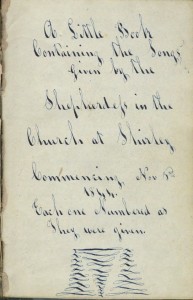 A Little Book
Containing the Songs
Given by the
Shepherdess in the
Church at Shirley
Commencing, Nov
1844.
Each one Numbered as
They were given.